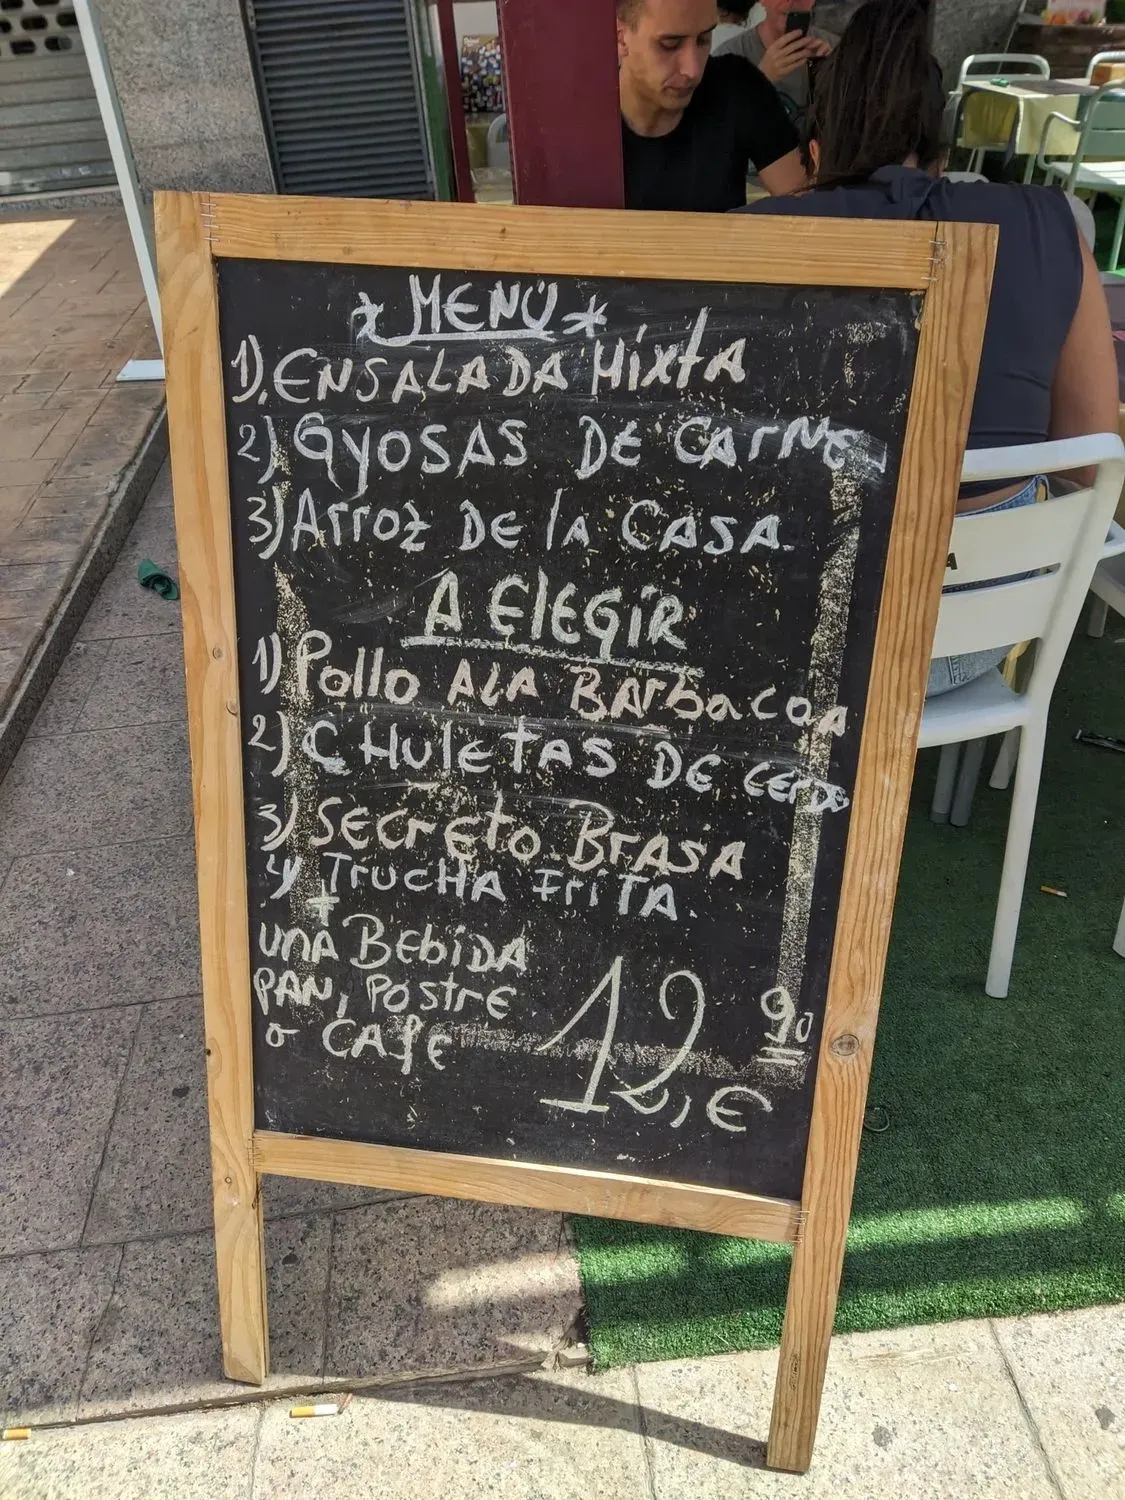 * MENÚ *
1). ENSALADA MixtA
2) GyOSAS DE CArNE
3) Arroz DE lA CASA.
A ElEGiR
1) Pollo ALA BArbacoA
2) CHulETAS DE CErDo
3) SECrEto BrASA
4) TrucHA FriTA.
+
unA BEbiDA
PAN, PostrE
o CAfE
12,90 €